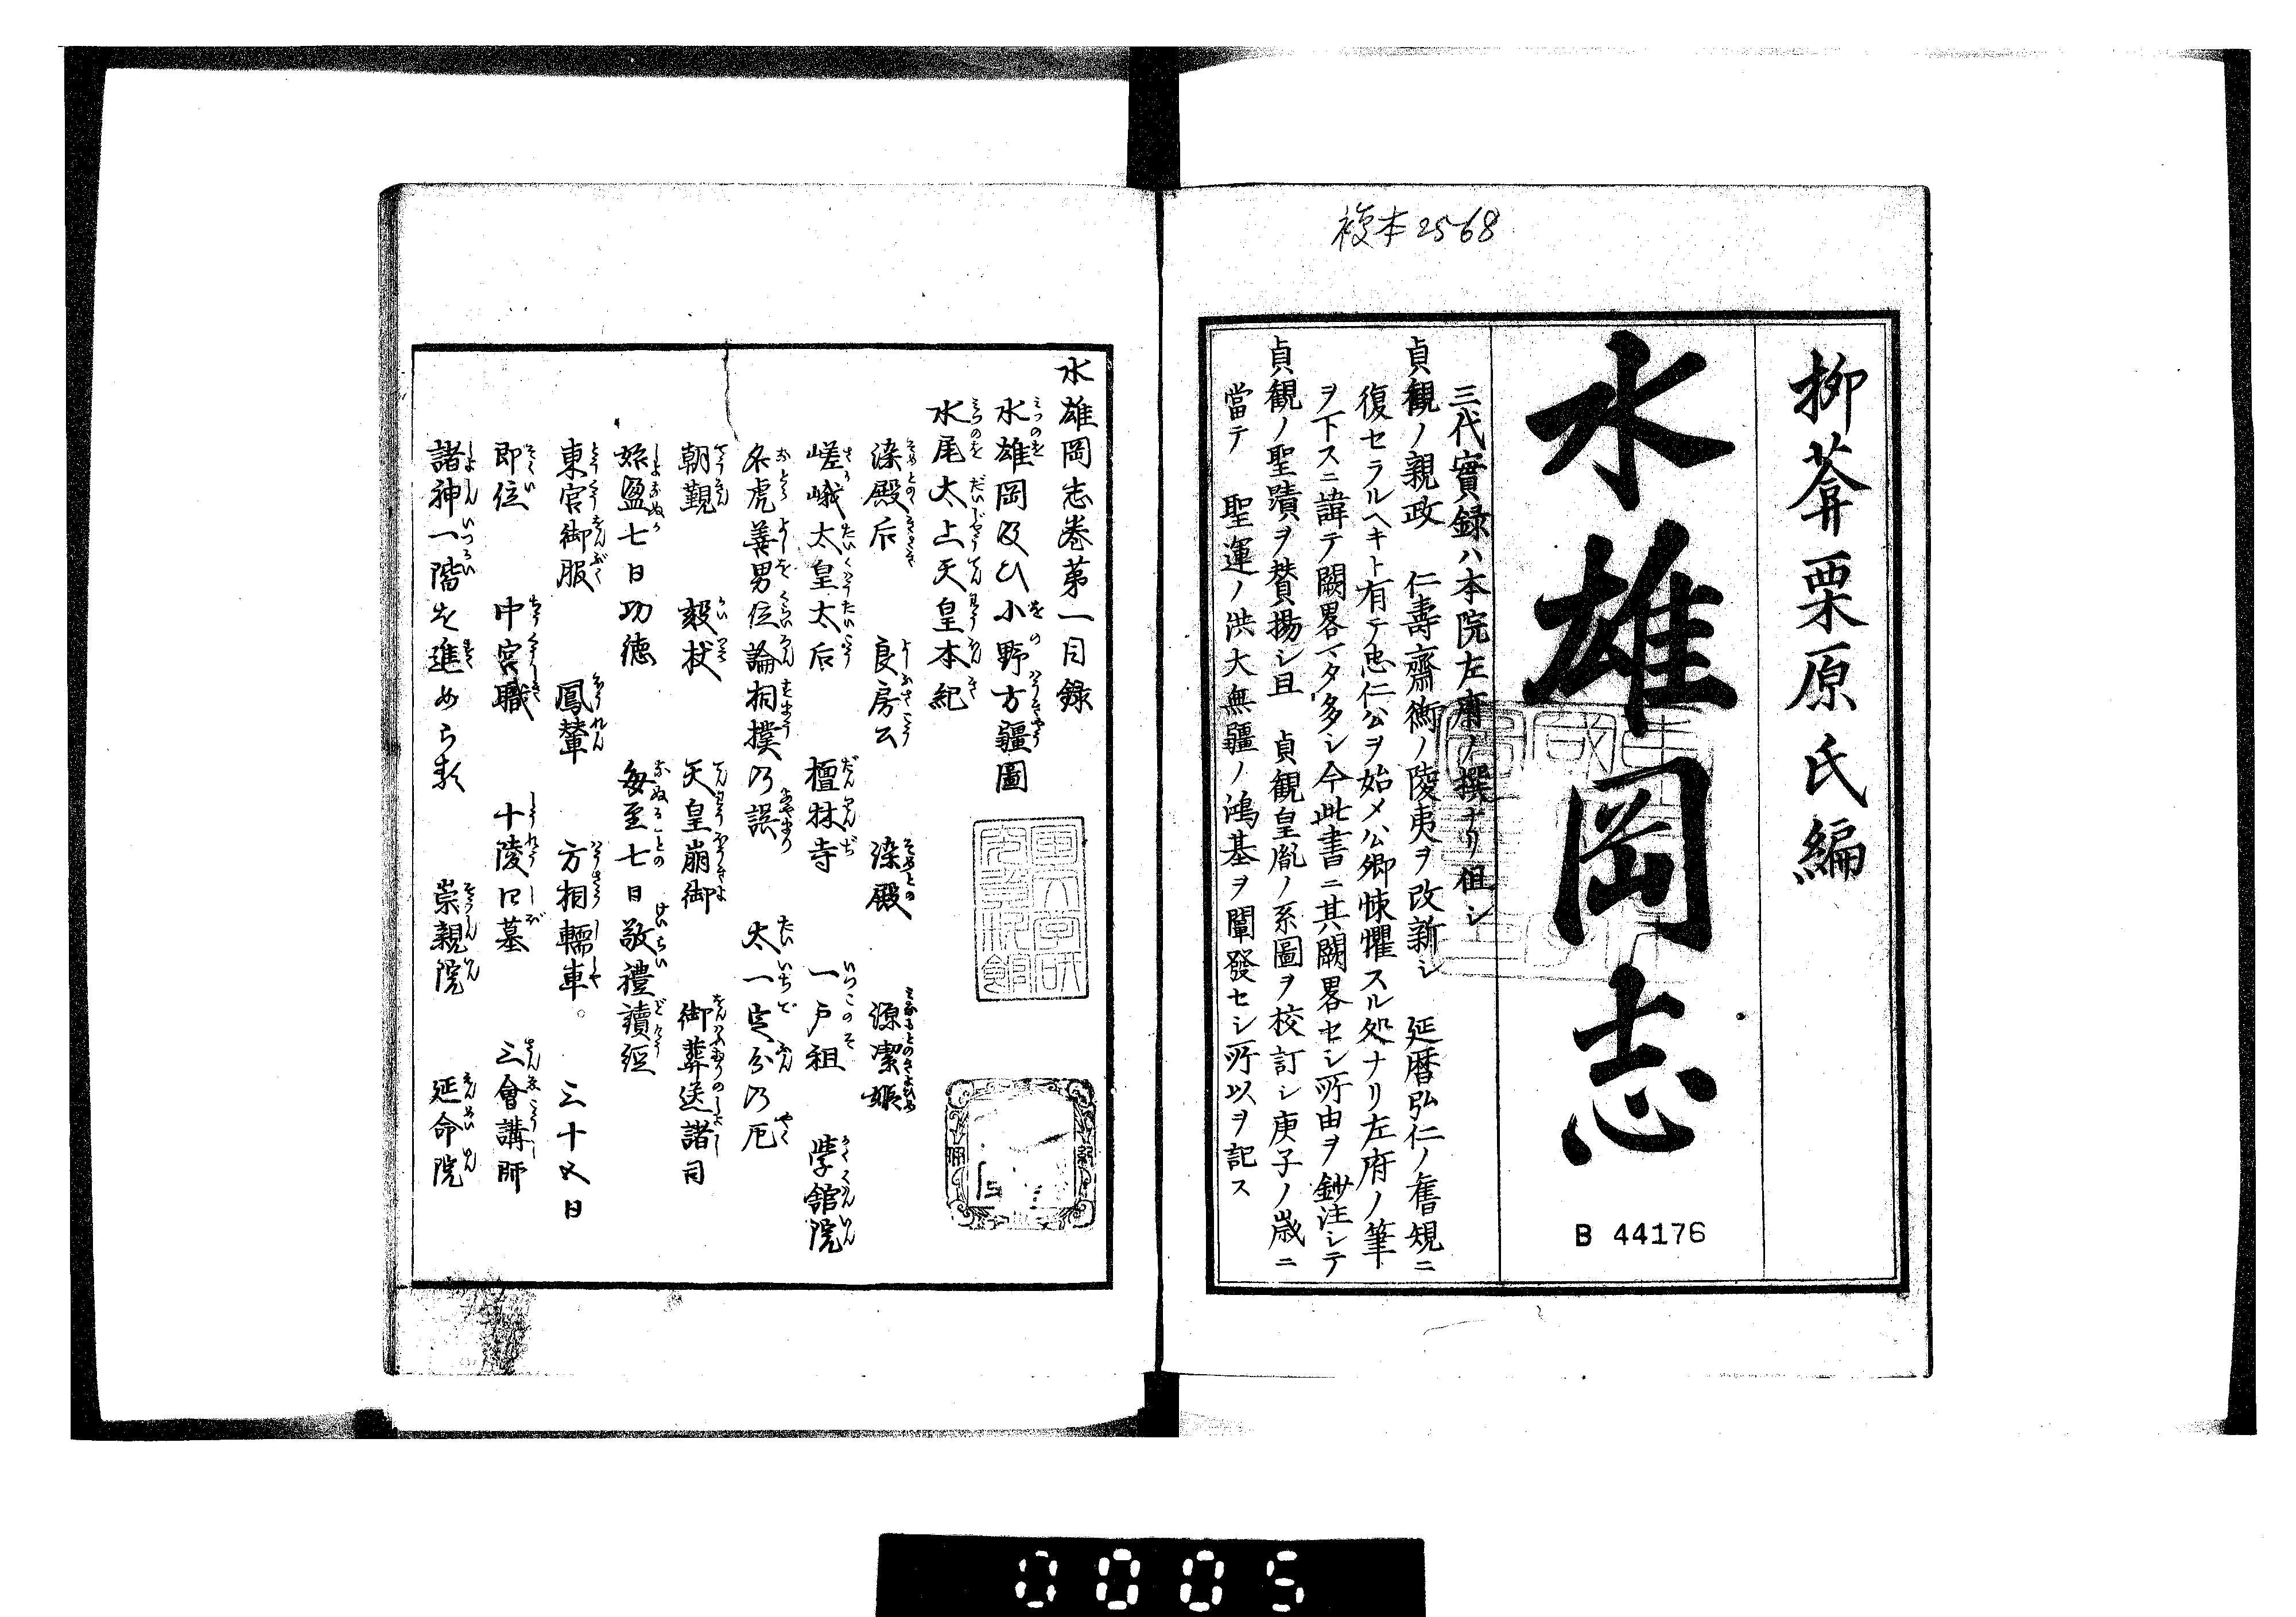 複本2568
柳葊栗原氏編
水雄岡志
B 44176
三代實録ハ本院左府ノ撰ナリ但シ
貞観ノ親政 仁壽齋衡ノ陵夷ヲ改新シ 延暦弘仁ノ舊規ニ
復セラルヘキト有テ忠仁公ヲ始メ公卿悚懼スル処ナリ左府ノ筆
ヲ下スニ諱テ闕畧マタ多シ今此書ニ其闕畧セシ所由ヲ鈔注シテ
貞観ノ聖蹟ヲ賛揚シ且 貞観皇胤ノ系圖ヲ校訂シ庚子ノ歳ニ
當テ 聖運ノ洪大無疆ノ鴻基ヲ闡發セシ所以ヲ記ス
水雄岡志巻第一目録
水雄岡及ひ小野方疆圖
水尾太上天皇本紀
染殿后 良房公 染殿 源潔姫
嵯峨太皇太后 檀林寺 一戸祖 学舘院
名虎善男位論相撲乃誤 太一定分乃厄
朝覲 天皇崩御 御葬送諸司
始盈七日功徳 毎至七日敬禮讀経
東宮御服 鳳輦 方相轜車 三十五日
即位 中宮職 十陵四墓 三會講師
諸神一階を進めらる 崇親院 延命院
0005